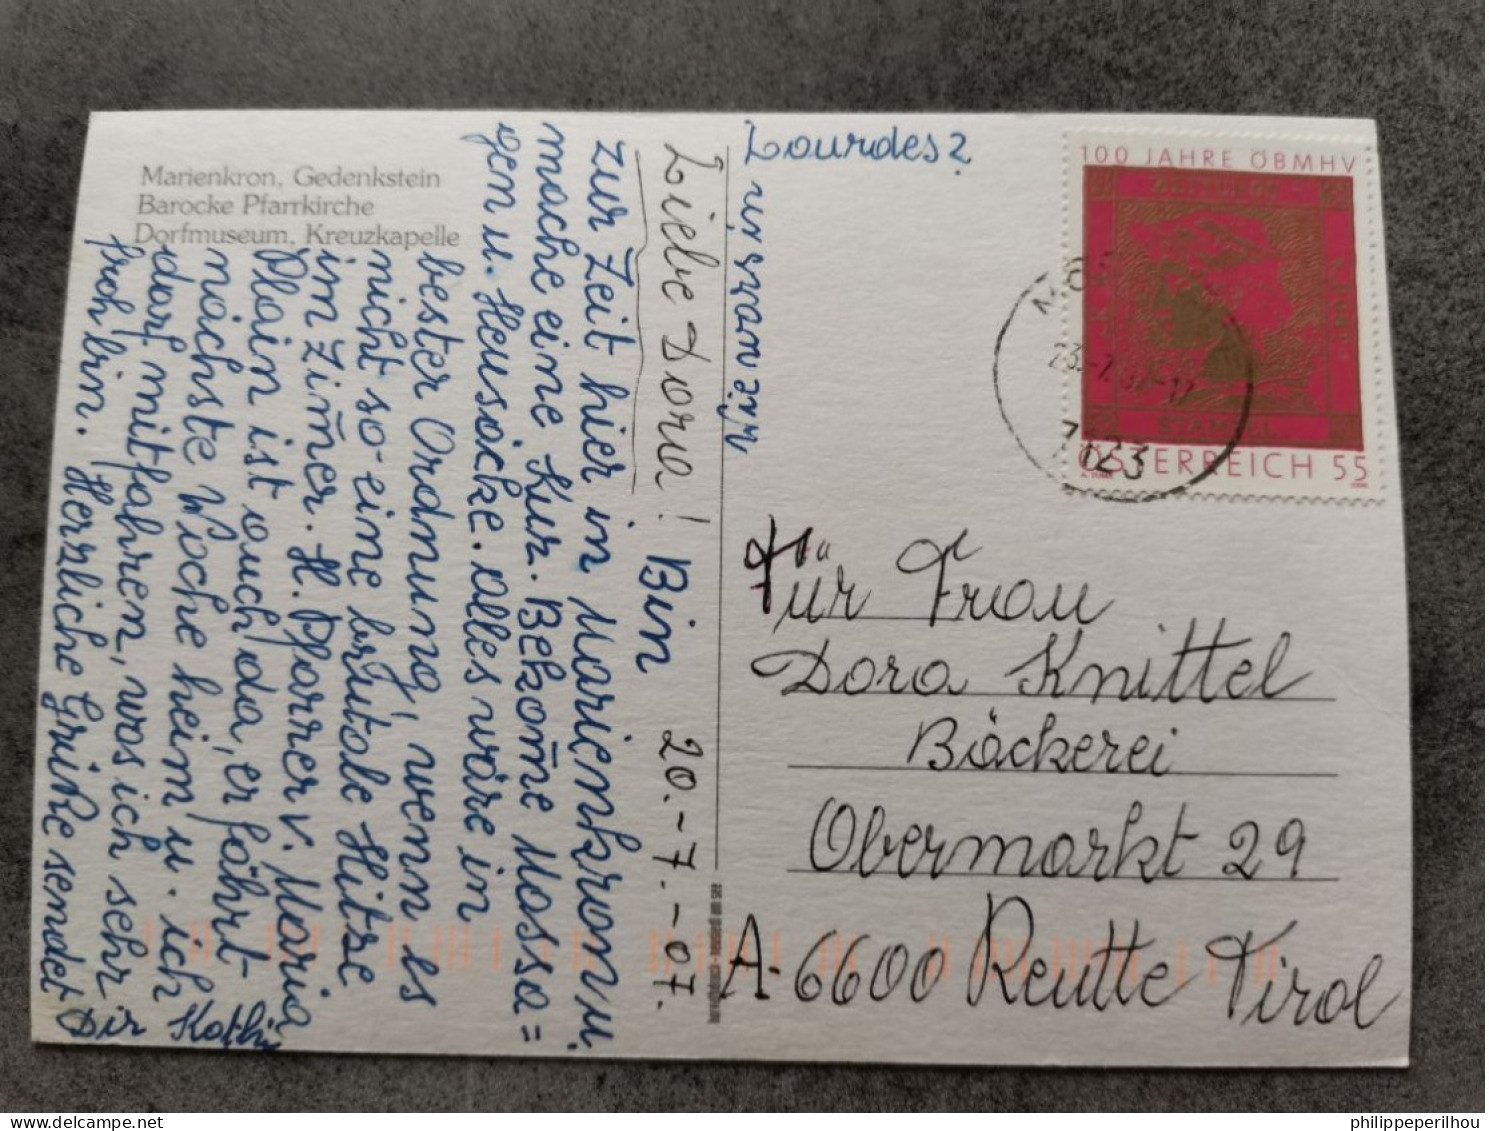 Marienkron, Gedenkstein
Barocke Pfarrkirche
Dorfmuseum, Kreuzkapelle
20.-7.-07.
Liebe Dora! Bin
zur Zeit hier in Marienkron u.
mache eine Kur. Bekom̄e Massa=
gen u. Heusäcke. Alles wäre in
bester Ordnung, wenn es
nicht so eine brutole Hitze
im Zim̄er. H. Pfarrer v. Maria
Plain ist auch da, er fährt
nächste Woche heim u. ich
darf mitfahren, was ich sehr
froh bin. Herzliche Grüße sendet Dir Kathi
Wie wars in
Lourdes?
100 JAHRE ÖBMHV
ZEITUNGS
STEMPEL
ÖSTERREICH 55
7123
Für Frau
Dora Knittel
Bäckerei
Obermarkt 29
A-6600 Reutte Tirol
philippeperilhou